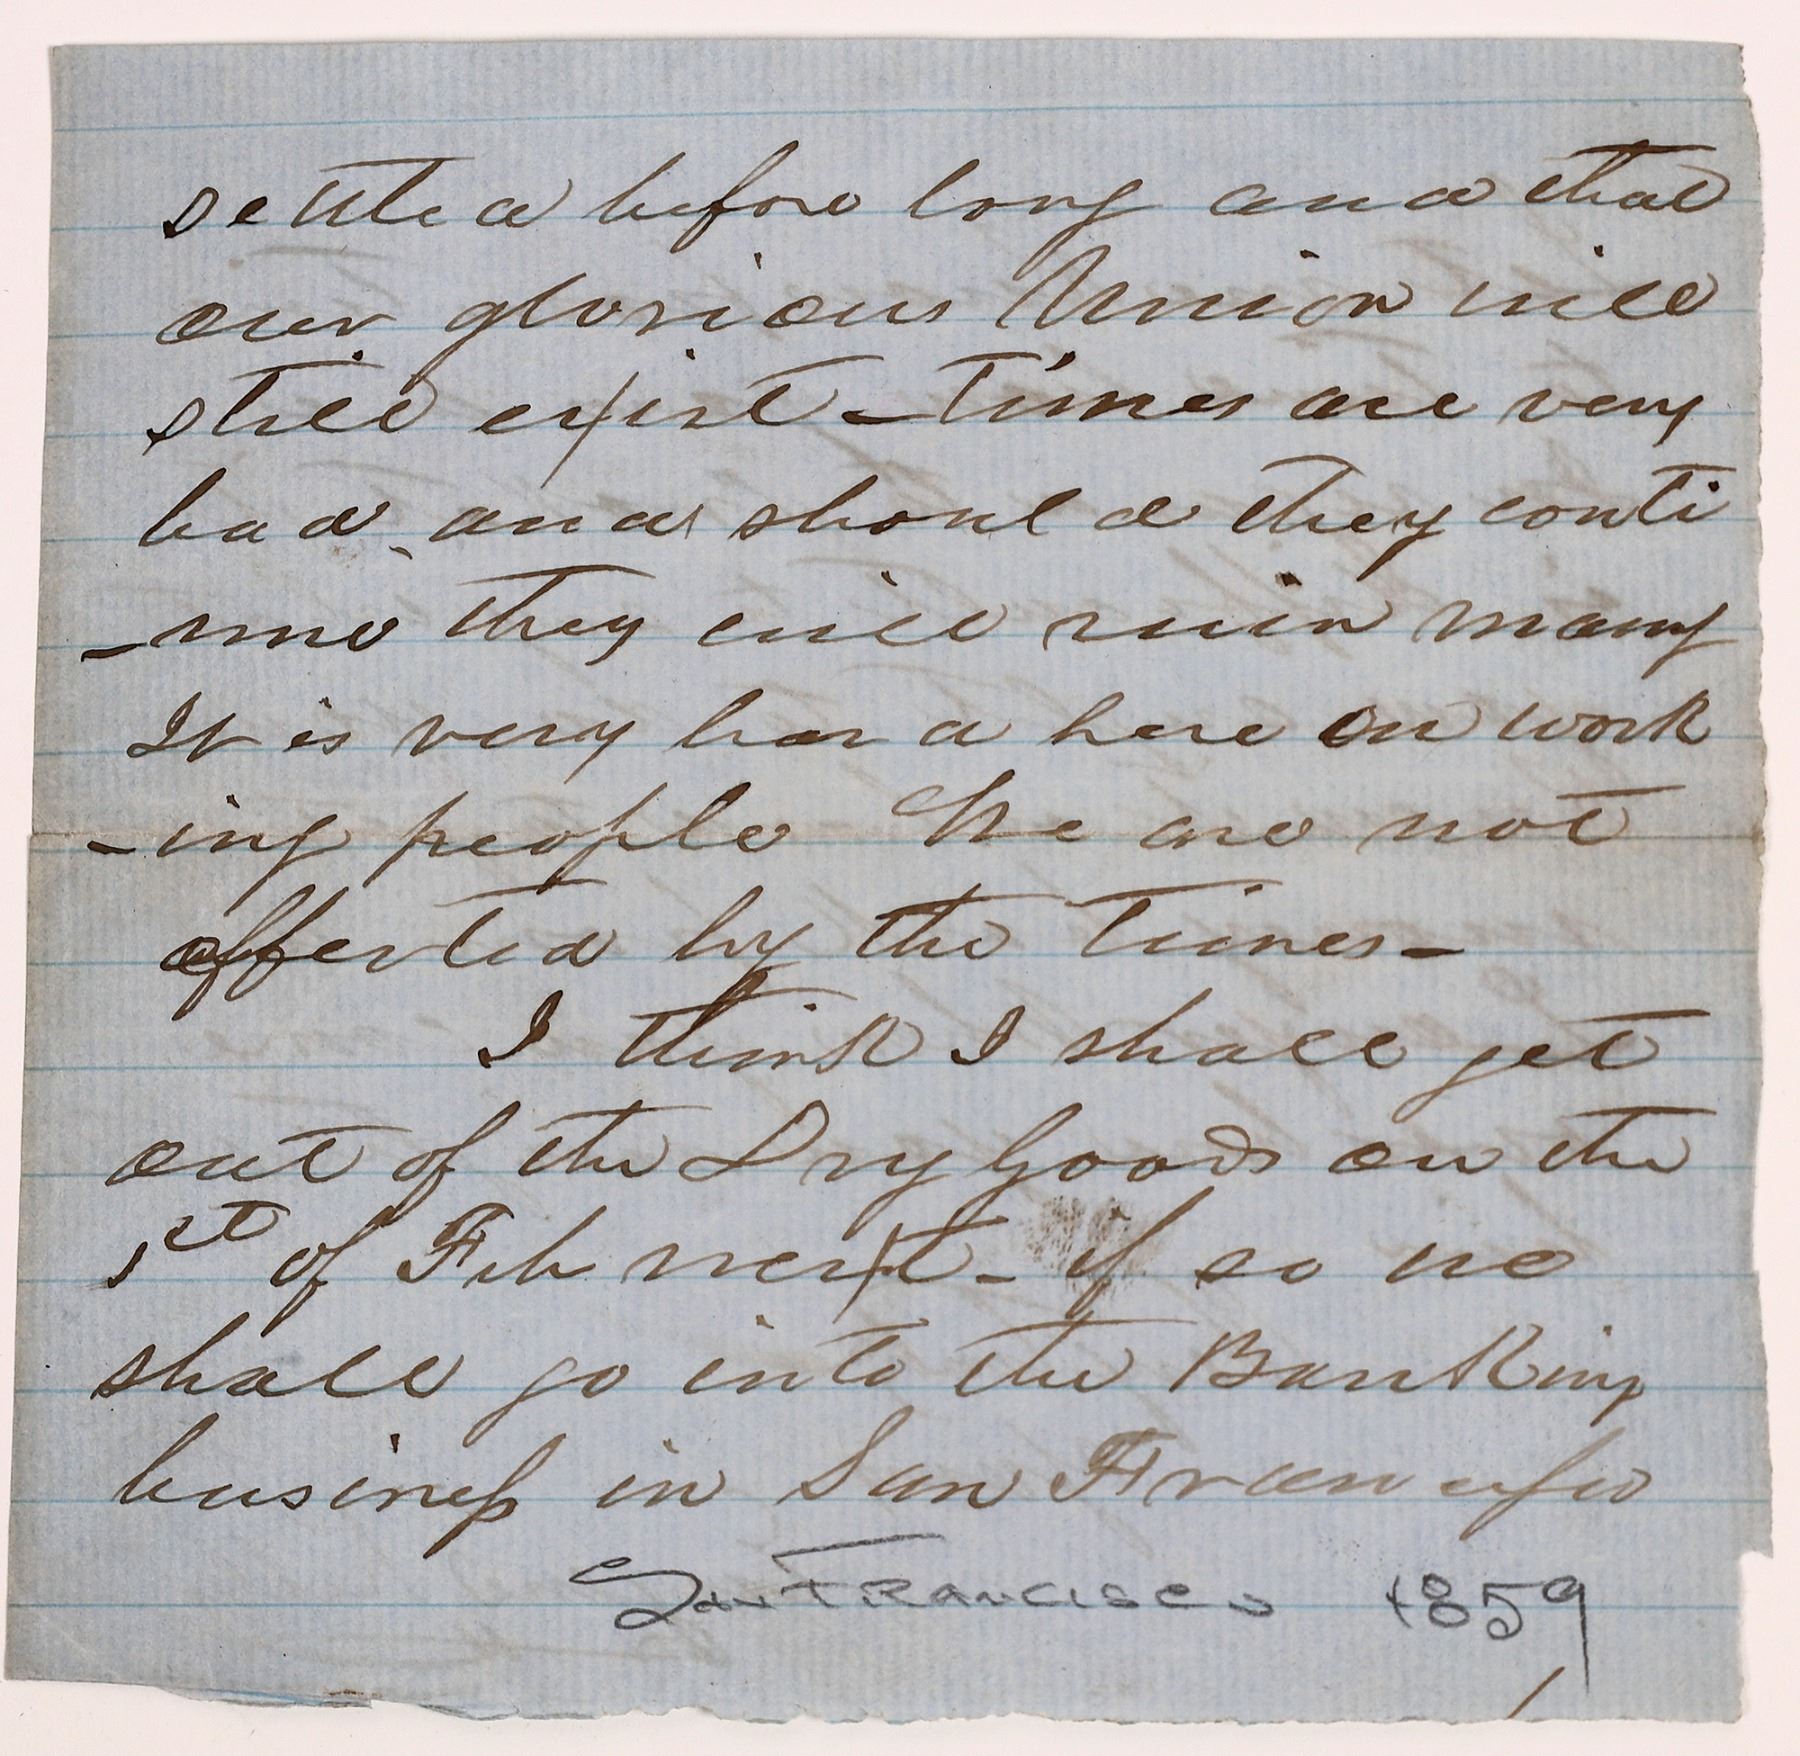 settled before long and that
our glorious Union will
still exist – Times are very
bad and should they conti
-nue they will ruin many
It is very hard here on work
-ing people We are not
affected by the Times –
I think I shall get
out of the Dry Goods on the
1st of Feb next – if so we
shall go into the Banking
business in San Francisco
San Francisco 1859